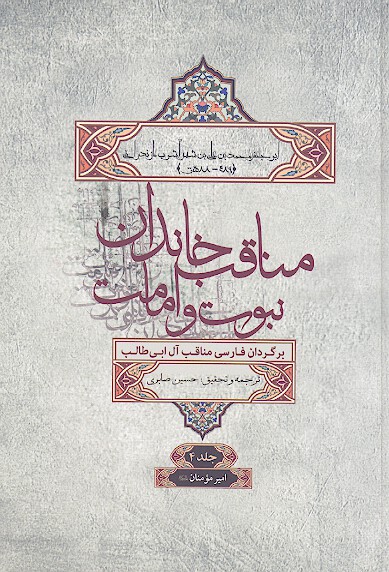 ابوجعفر محمد بن علی بن شهرآشوب مازندرانی
(۴۸۹ - ۵۸۸ق)
مناقب خاندان
نبوت و امامت
برگردان فارسی مناقب آل ابی‌طالب
ترجمه و تحقیق: حسین صابری
جلد ۴
امیر مؤمنان